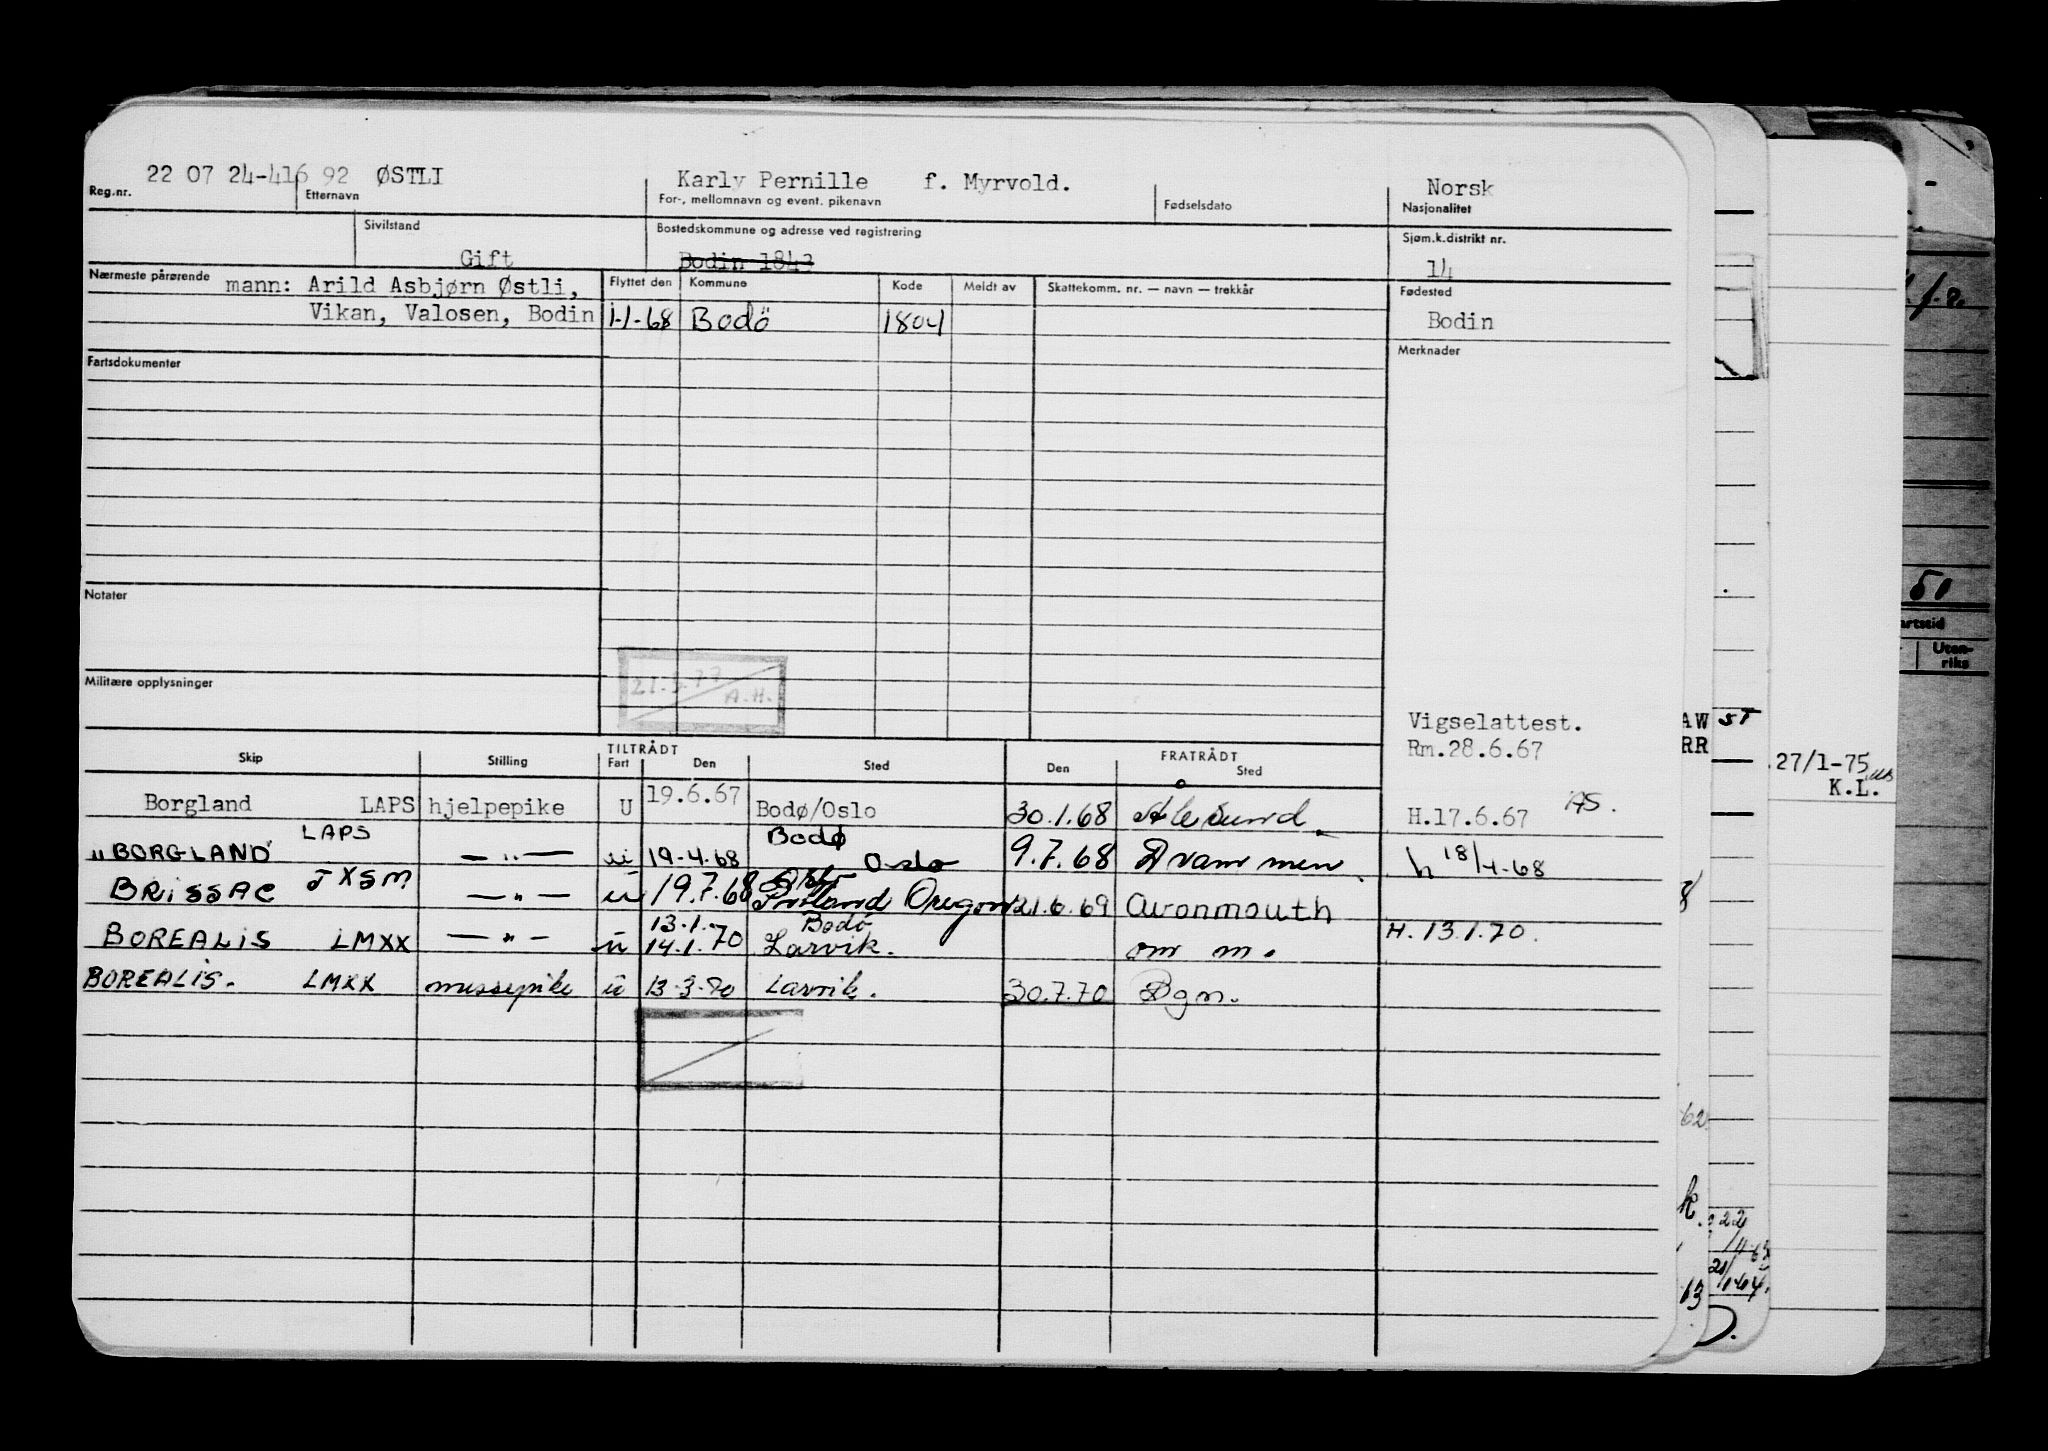 22 07 24-416 92 ØSTLI Karly Pernille f. Myrvold. Norsk
Reg.nr. Etternavn For-, mellomnavn og event. pikenavn Fødselsdato Nasjonalitet
Sivilstand Bostedskommune og adresse ved registrering Sjøm.k.distrikt nr.
Gift Bodin 1843 14
Nærmeste pårørende mann: Arild Asbjørn Østli, Flyttet den Kommune Kode Meldt av Skattekomm. nr. — navn — trekkår Fødested
Vikan, Valosen, Bodin 1-1-68 Bodö 1804 Bodin
Fartsdokumenter Merknader
Notater
Militære opplysninger
A.H.
Vigselattest.
Rm.28.6.67
TILTRÅDT FRATRÅDT
Skip Stilling Fart Den Sted Den Sted
Borgland LAPS hjelpepike U 19.6.67 Bodø/Oslo 30.1.68 Ålesund H.17.6.67 AS.
"BORGLAND" LAPS — " — u 19-4-68 Bodø Oslo 9.7.68 Drammen h 18/4-68
BRISSAC JXSM — " — u 19.7.68 Oslo Portland Oregon 21.6.69 Avonmouth
BOREALIS LMXX — " — u 13.1.- 14.1.70 Bodø Larvik. om m. H. 13.1.70.
BOREALIS. LMXX messepike u 13-3-70 Larvik. 30.7.70 Bgn.
AW ST
RR
27/1-75
K.L.
51
artstid
Utenriks
62
k.
22
21/
13